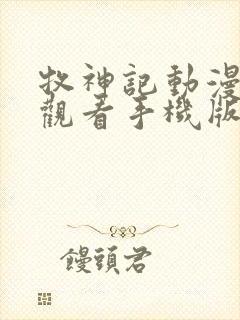 牧神記動漫
觀看手機版
饅頭君